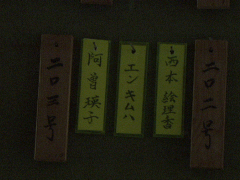 二〇二号
西本 絵理吉
エンキムハ
阿曽 瑛子
二〇三号